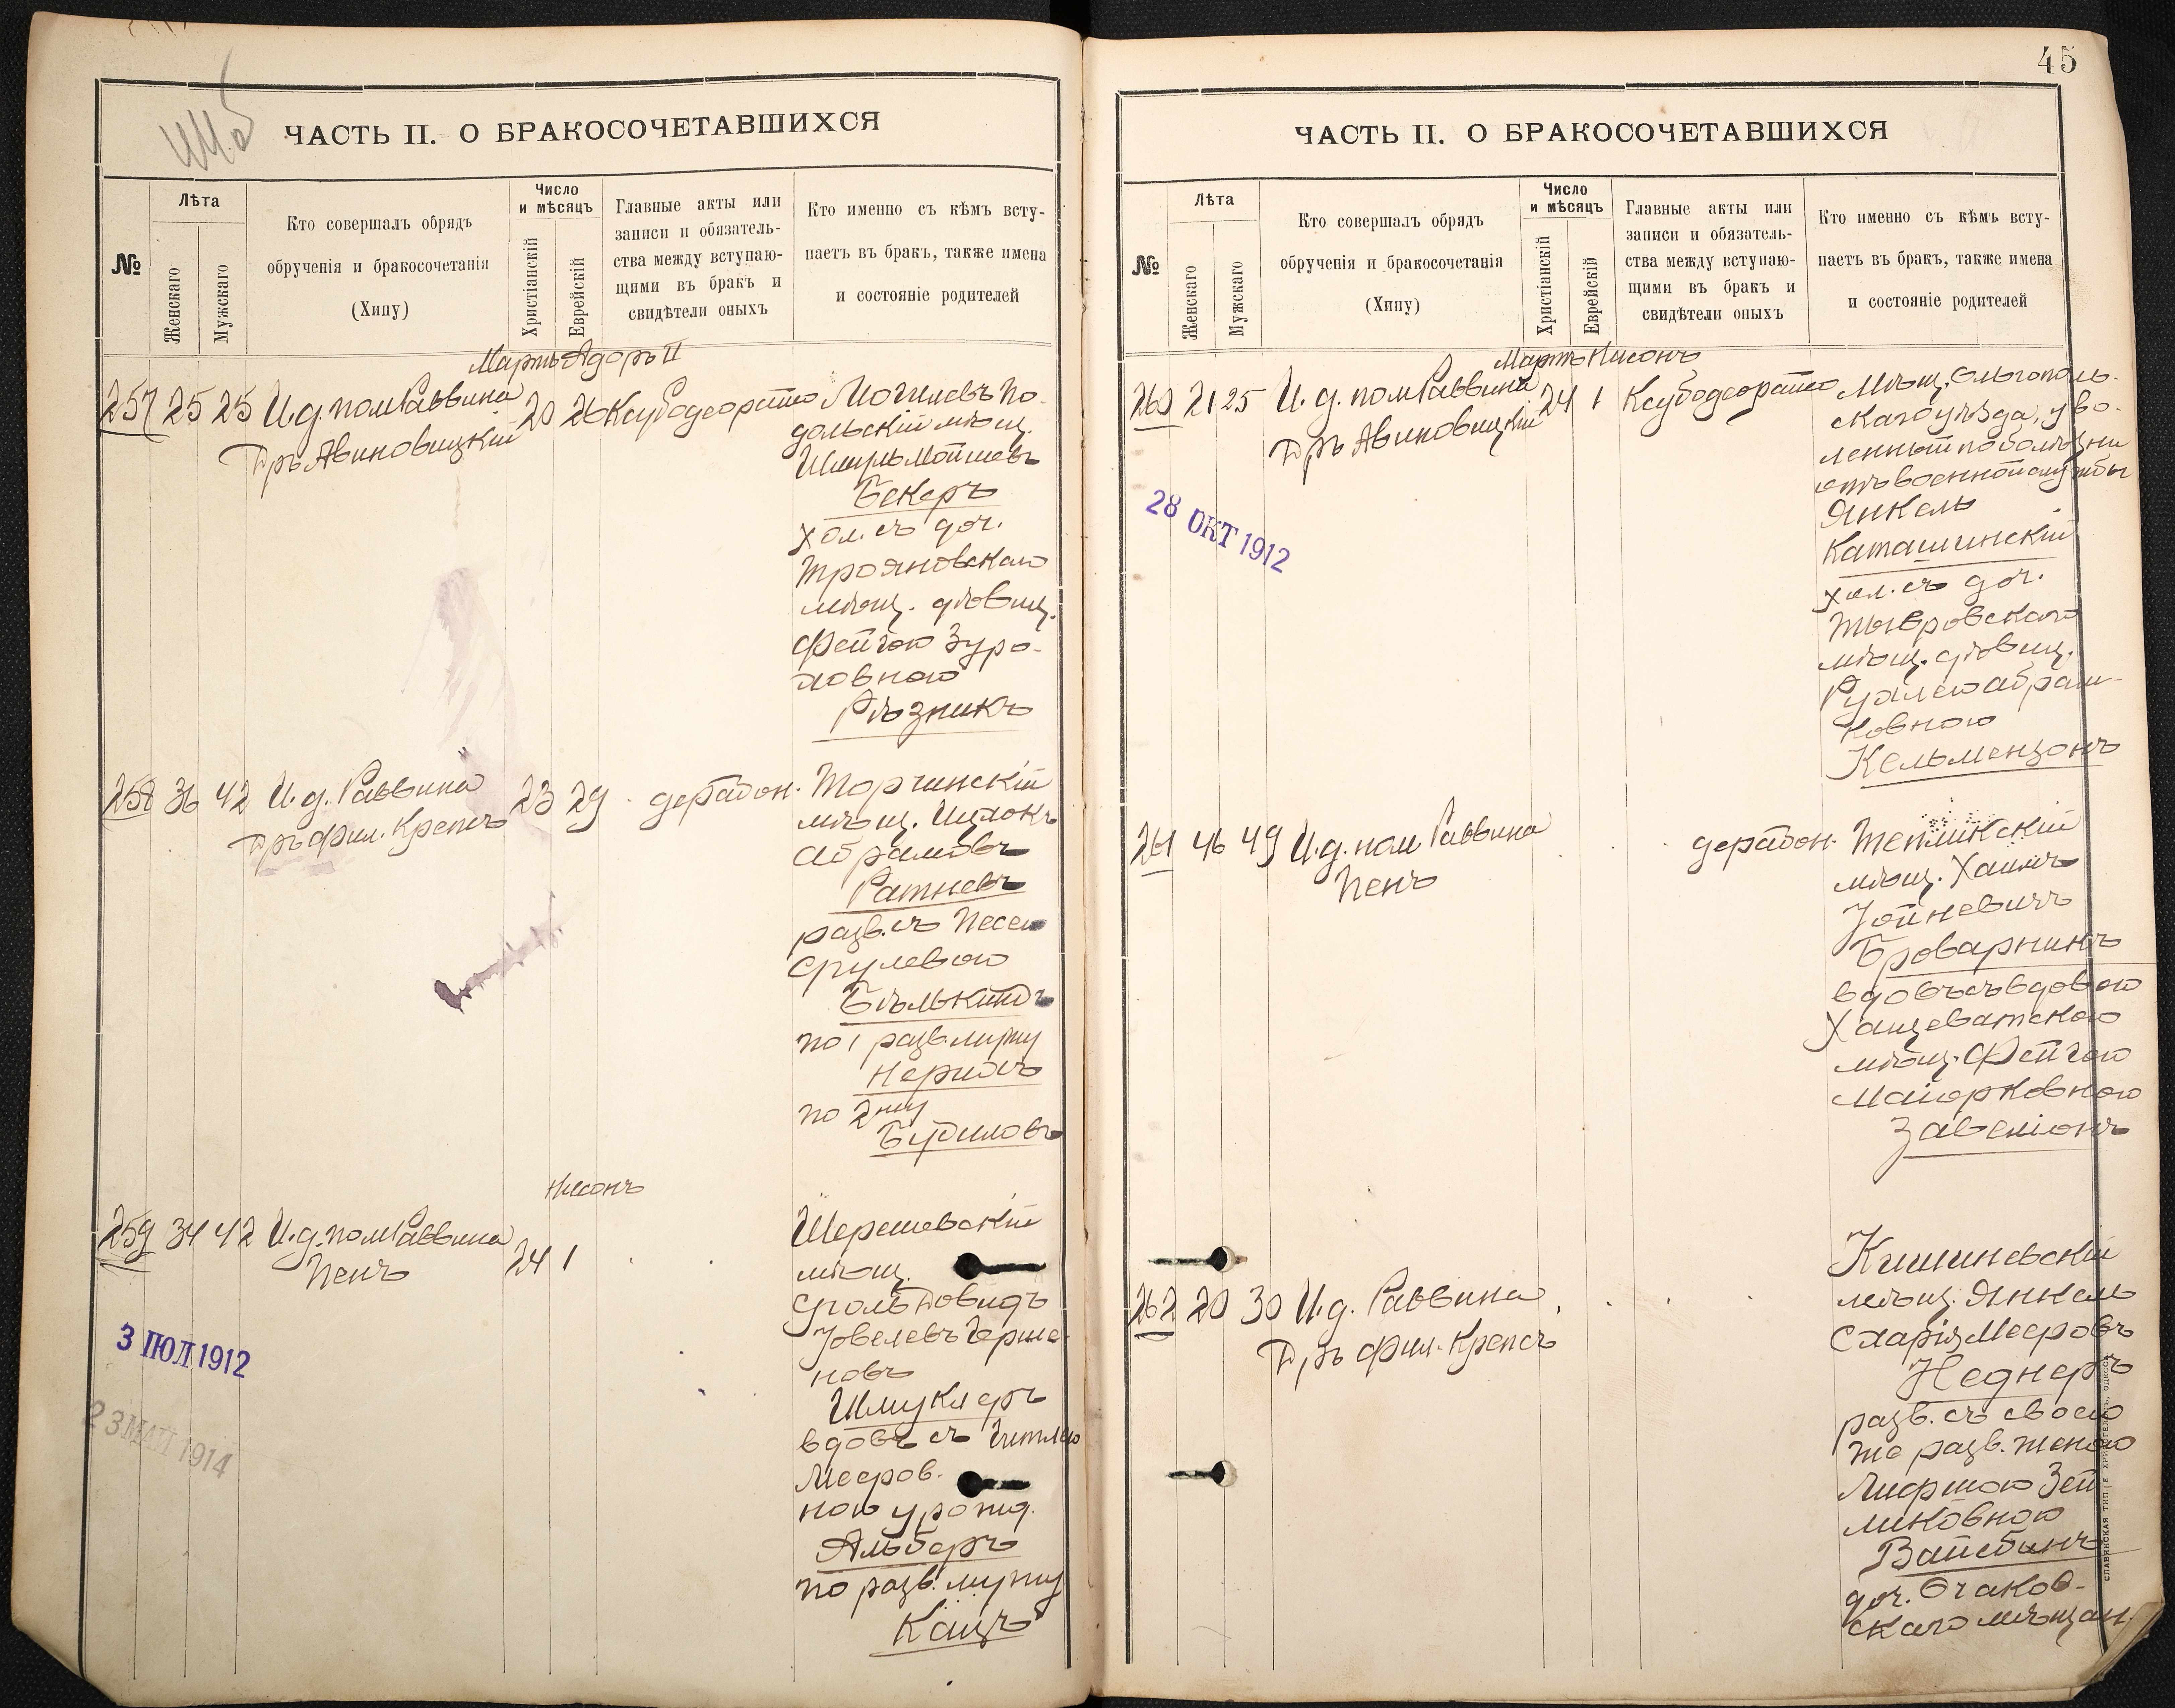 45
ЧАСТЬ II. О БРАКОСОЧЕТАВШИХСЯ
№
Лѣта
Женскаго
Мужскаго
Кто совершалъ обрядъ
обрученія и бракосочетанія
(Хипу)
Число
и мѣсяцъ
Христіанскій
Еврейскій
Главные акты или
записи и обязатель-
ства между вступаю-
щими въ бракъ и
свидѣтели оныхъ
Кто именно съ кѣмъ всту-
паетъ въ бракъ, также имена
и состояніе родителей
Мартъ Адоръ II
257 25 25 И.д. пом Раввина 20 26 Ксубо деорато Могилевъ По-
Д-ръ Авиновицкій
дольскій мѣщ.
Шмуль Мошлевъ
Бекеръ
хол. съ доч.
Трояновскаго
мѣщ. дѣвиц.
Фейгою Зуро-
ловною
Рѣзникъ
258 36 42 И.д. Раввина 23 29 дерабон. Торчинскій
Д-ръ фил. Крепсъ
мѣщ. Ицхокъ
Абрамовъ
Ратневъ
разв. съ Песею
Срулевою
Бѣлькиндъ
по 1 разв. мужу
по 2му
Нисонъ
259 34 42 И.д. пом Раввина 24 1
Пенъ
Шерешевскій
мѣщ.
Сроль Довидъ
Іовелевъ Герше-
новъ
Шмуклеръ
вдовъ съ Гитлею
Мееров.
ною урожд.
Альберъ
по разв. мужу
Кацъ
3 ІЮЛ 1912
23 МАЙ 1914
ЧАСТЬ II. О БРАКОСОЧЕТАВШИХСЯ
№
Лѣта
Женскаго
Мужскаго
Кто совершалъ обрядъ
обрученія и бракосочетанія
(Хипу)
Число
и мѣсяцъ
Христіанскій
Еврейскій
Главные акты или
записи и обязатель-
ства между вступаю-
щими въ бракъ и
свидѣтели оныхъ
Кто именно съ кѣмъ всту-
паетъ въ бракъ, также имена
и состояніе родителей
Мартъ Нисонъ
260 21 25 И.д. пом Раввина 24 1 Ксубо деорато Мѣщ. Ольгополь-
Д-ръ Авиновицкій
скаго уѣзда, уво-
ленный по болѣзни
отъ военной службы
Янкель
Каташинскій
хол. съ доч.
Тывровскаго
мѣщ. дѣвиц.
Рухлею Абрам-
ковною
Кельмензонъ
28 ОКТ 1912
261 46 49 И.д. пом Раввина дерабон. Тепликскій
Пенъ
мѣщ. Хаимъ
Іойневичъ
Броварникъ
вдовъ съ вдовою
Хащеватскаго
мѣщ. Фейгою
Майорковною
262 20 30 И.д. Раввина
Д-ръ фил. Крепсъ
Кишиневскій
мѣщ. Янкель
Схарія Мееровъ
Неднеръ
разв. съ своею
же разв. женою
Зей
ликовною
Вайсбинъ
доч. Очаков-
скаго мѣщан.
СЛАВЯНСКАЯ ТИП. Е. ХРИСОГЕЛОСЪ, ОДЕССА